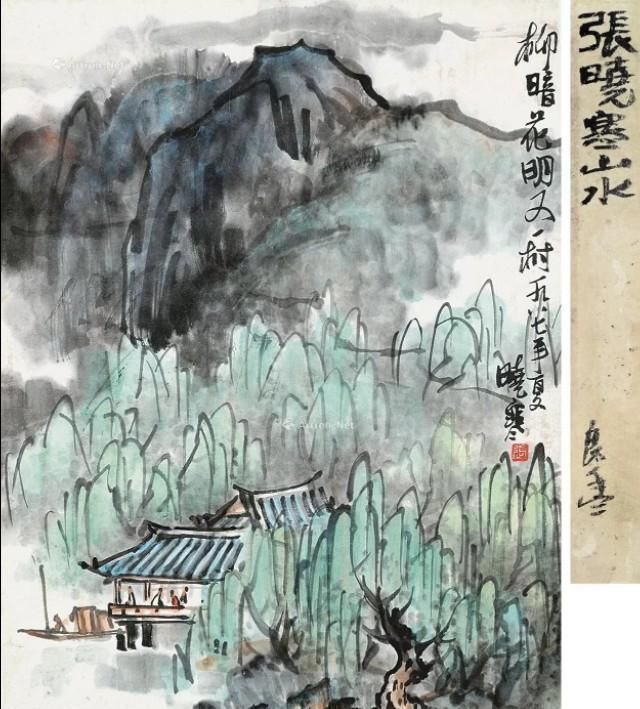 張曉寒山水
柳暗花明又一村一九八七年夏
曉寒
Artron.Net
Artron.Net